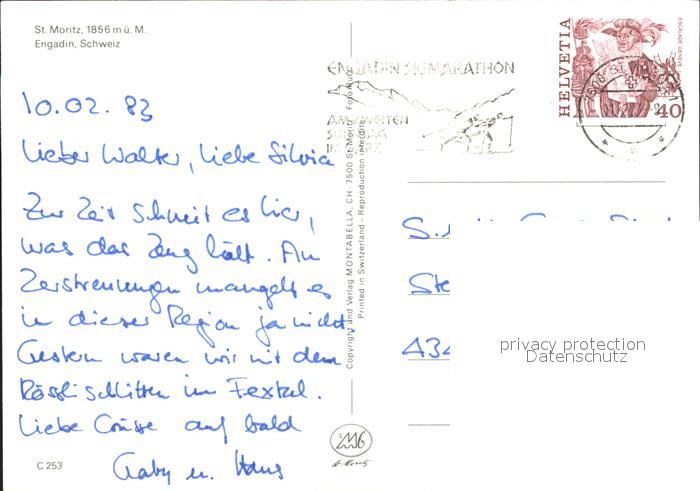 St. Moritz, 1856 m ü. M.
Engadin, Schweiz
10.02.83
Lieber Walter, liebe Silvia
Zur Zeit schneit es hier,
was das Zeug hält. An
Zerstreuungen mangelt es
in dieser Region ja nicht.
Gestern waren wir mit dem
Rösslischlitten im Fextal.
Liebe Grüsse auf bald
Gaby u. Hans
C 253
Copyright und Verlag MONTABELLA, CH-7500 St. Moritz
Printed in Switzerland – Reproduction interdite
ENGADIN SKIMARATHON
AM ZWEITEN
SONNTAG
IM MÄRZ
HELVETIA
ESCALADE GENÈVE
40
privacy protection
Datenschutz